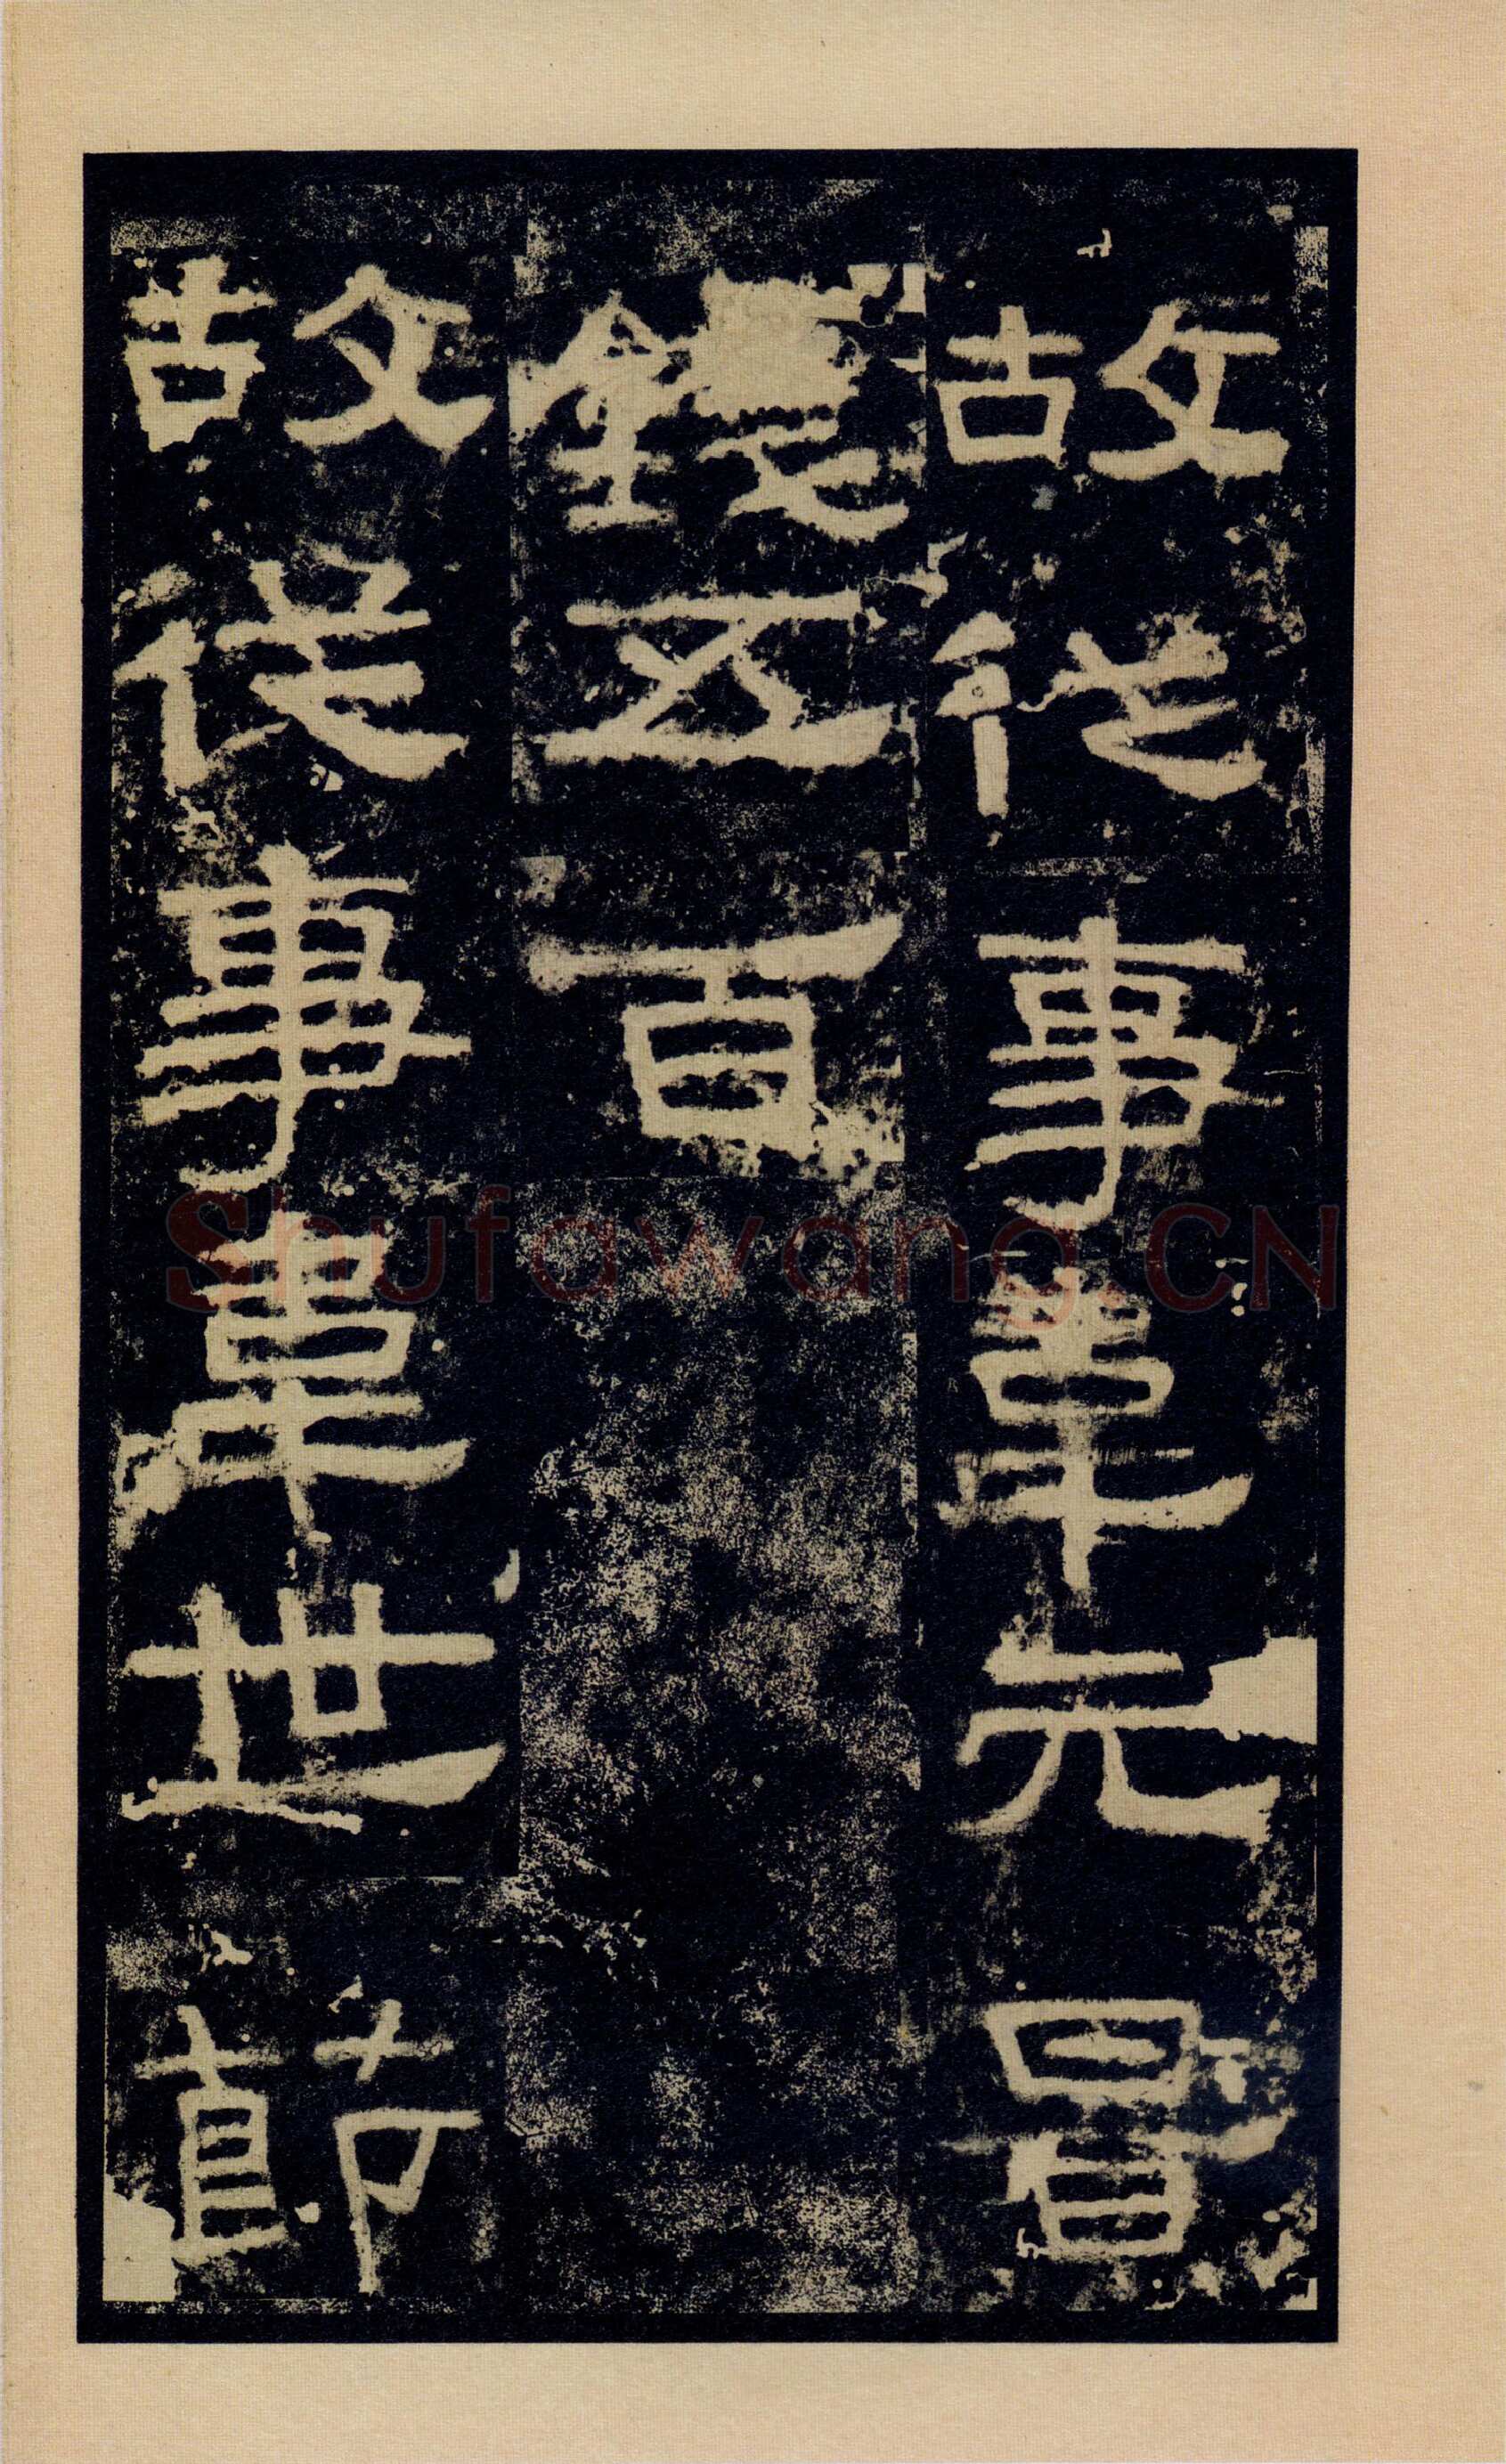 故從事韋元景
錢五百
故從事韋世節
Shufawang.CN